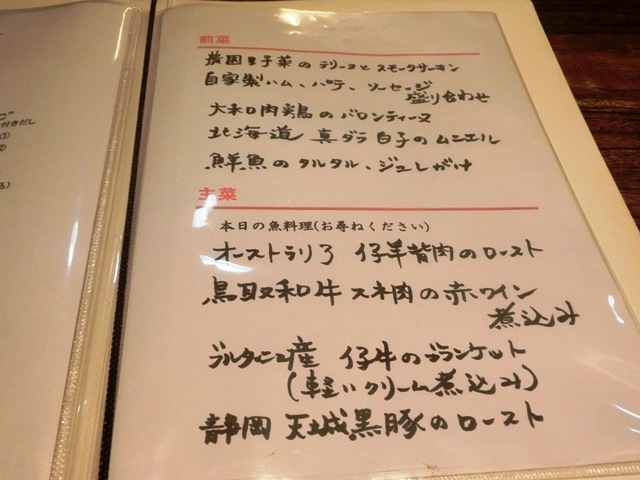 C"
付きだし
①
②
前菜
農園野菜のテリーヌとスモークサーモン
自家製ハム、パテ、ソーセージ
盛り合わせ
大和肉鶏のバロンティーヌ
北海道 真ダラ白子のムニエル
鮮魚のタルタル、ジュレがけ
主菜
本日の魚料理(お尋ねください)
オーストラリア 仔羊背肉のロースト
鳥取和牛スネ肉の赤ワイン
煮込み
ブルターニュ産 仔牛のブランケット
(軽いクリーム煮込み)
静岡 天城黒豚のロースト